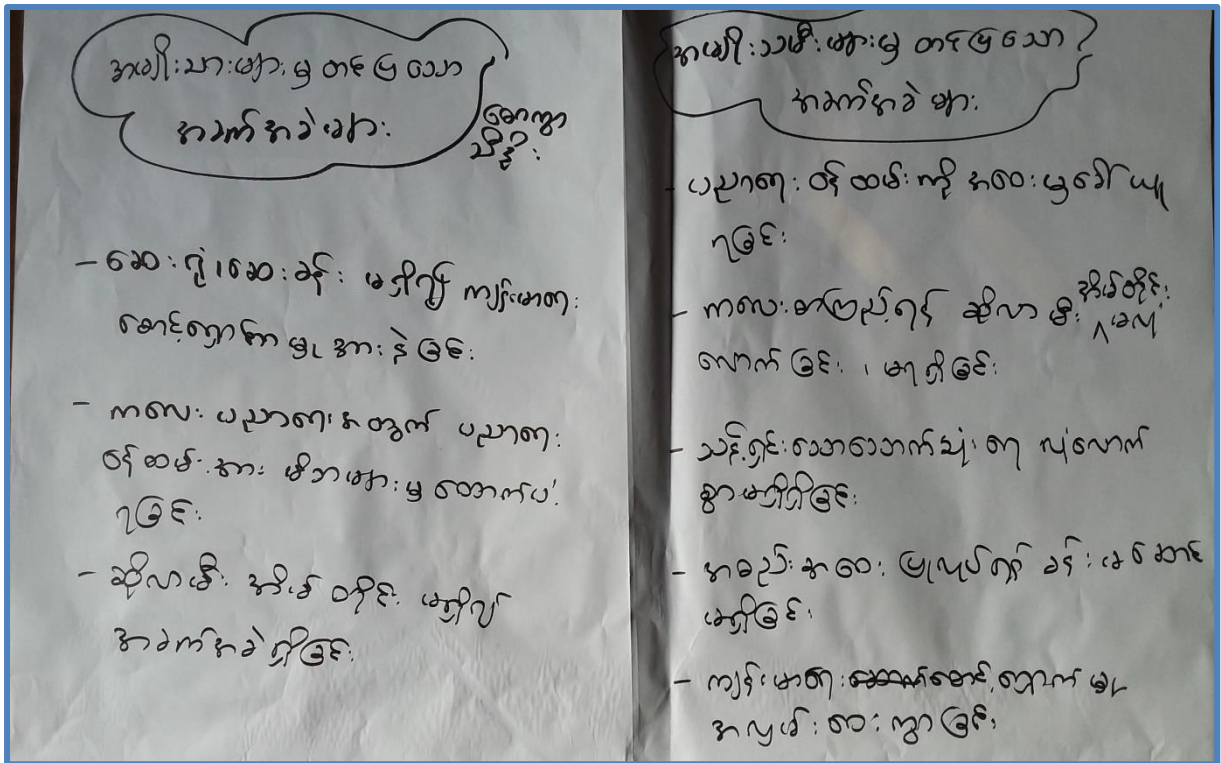 အမျိုးသားများမှ တင်ပြသော
အခက်အခဲများ
- ဆေးရုံ၊ဆေးခန်း မရှိ၍ ကျန်းမာရေး
စောင့်ရှောက်မှု အားနဲခြင်း
- ကလေး ပညာရေးအတွက် ပညာရေး
ဝန်ထမ်းအား မိဘများမှ ထောက်ပံ့
ရခြင်း
- ဆိုလာမီး အိမ်တိုင်း မရှိ၍
အခက်အခဲရှိခြင်း
အမျိုးသမီးများမှ တင်ပြသော
အခက်အခဲများ
- ပညာရေးဝန်ထမ်းကို အဝေးမှခေါ်ယူ
ရခြင်း
- ကလေးစာကြည့်ရန် ဆိုလာမီး အိမ်တိုင်း မလုံ
လောက်ခြင်း၊ မရှိခြင်း
- သန့်ရှင်းသောသောက်သုံးရေ လုံလောက်
စွာမရရှိခြင်း
- အစည်းအဝေးပြုလုပ်ရန် ခန်းမဆောင်
မရှိခြင်း
- ကျန်းမာရေးစောင့်ရှောက်မှု
အလှမ်းဝေးကွာခြင်း